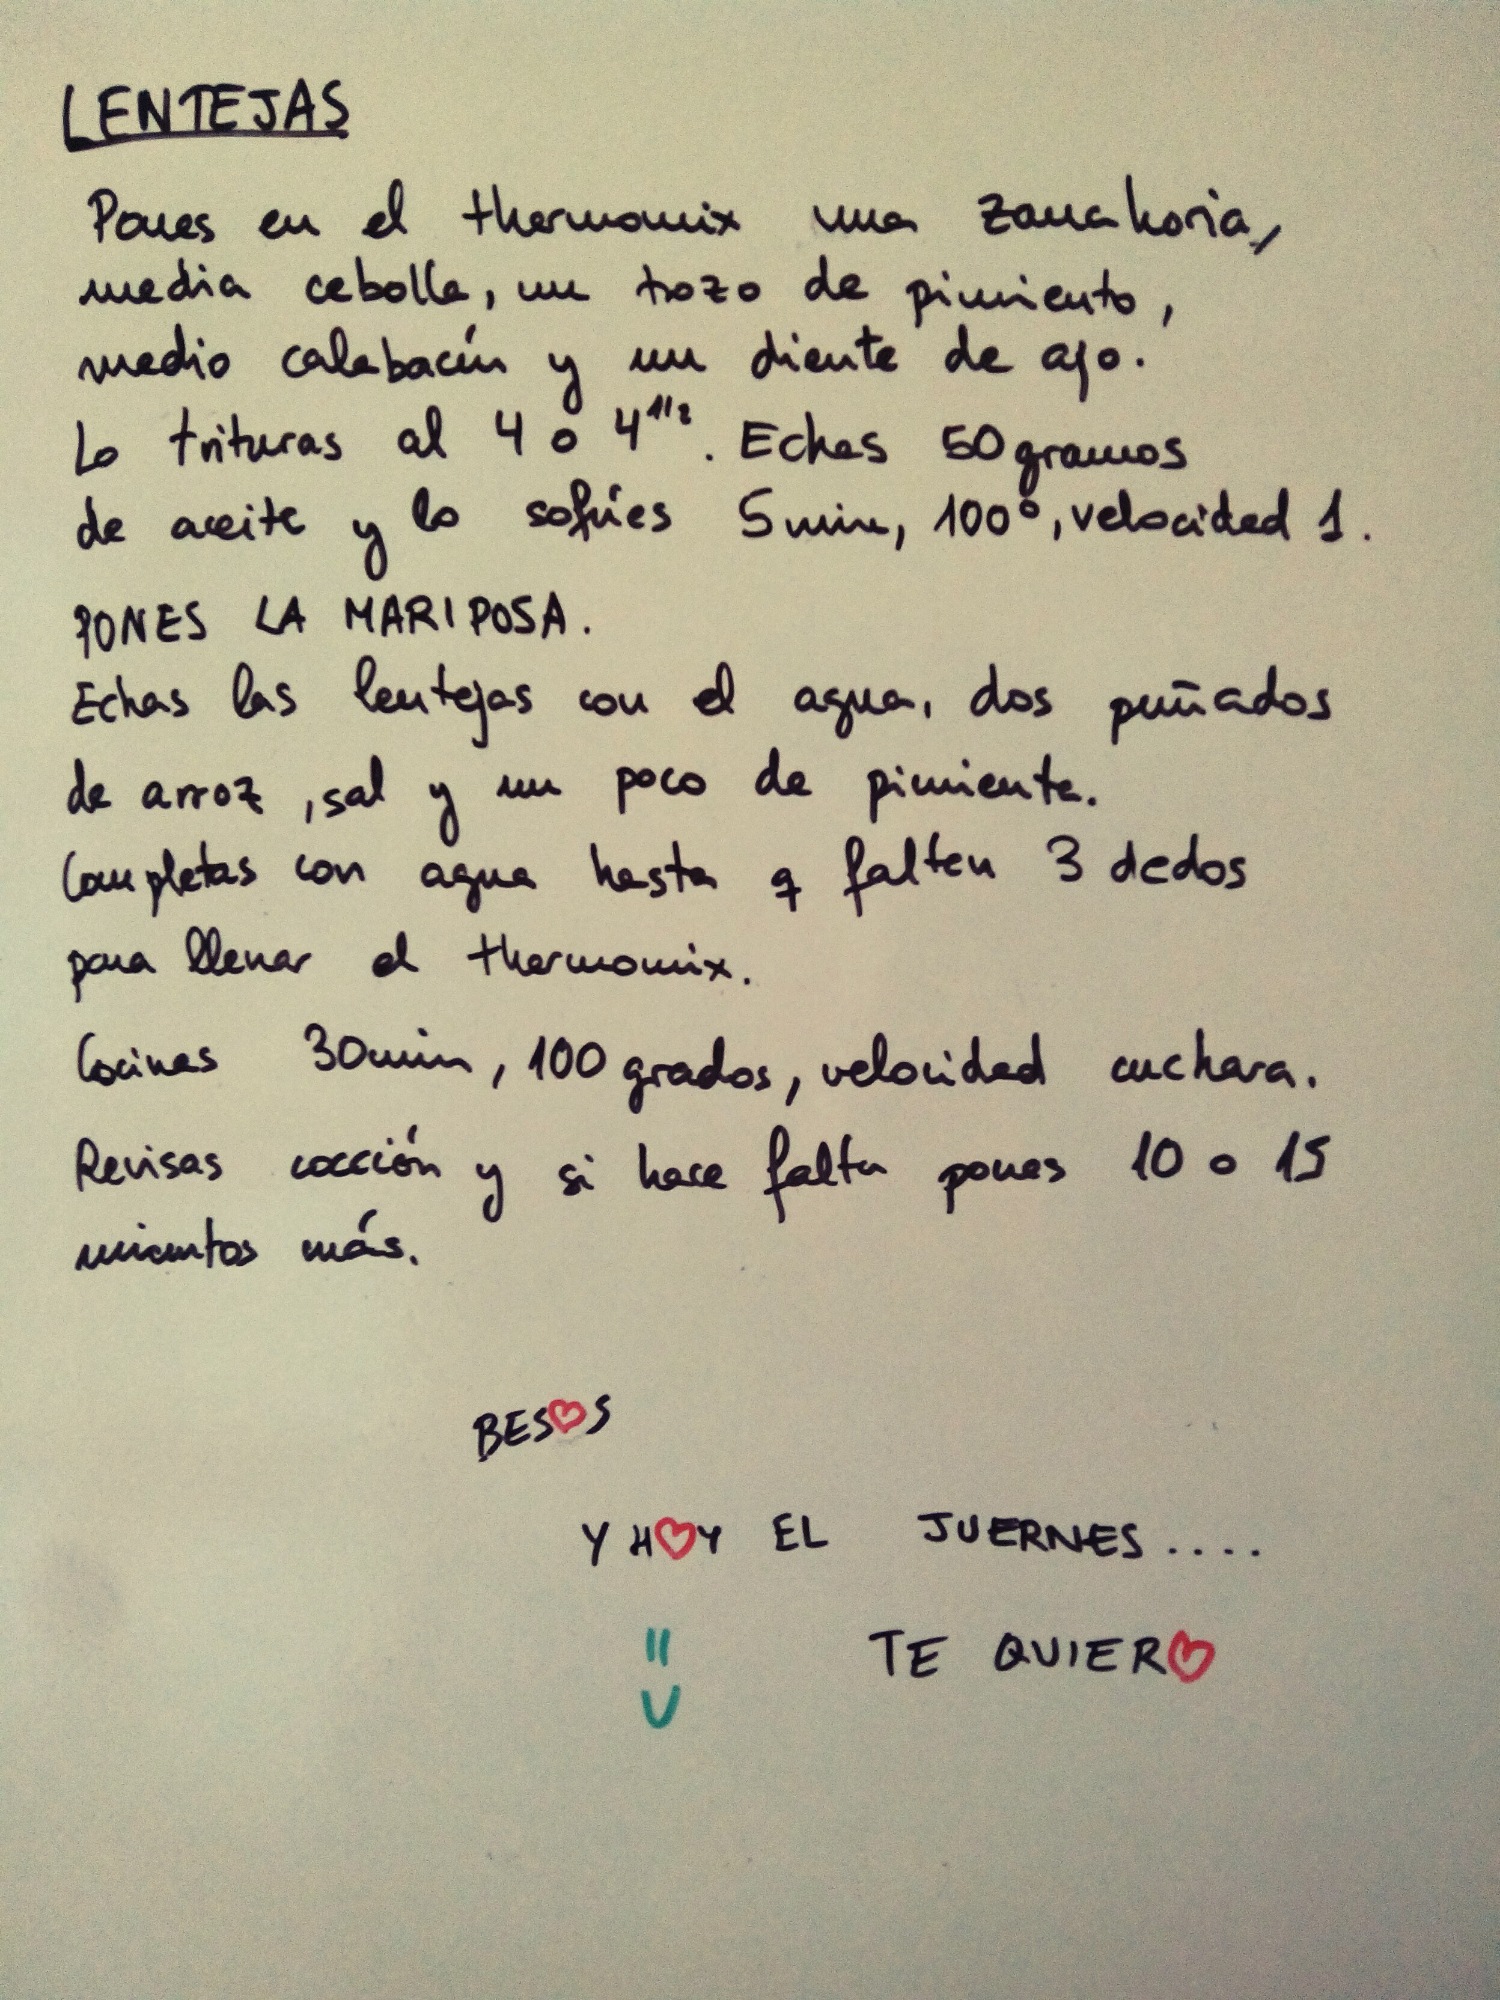 LENTEJAS
Pones en el thermomix una zanahoria,
media cebolla, un trozo de pimiento,
medio calabacín y un diente de ajo.
Lo trituras al 4 o 4 1/2. Echas 50 gramos
de aceite y lo sofríes 5 min, 100º, velocidad 1.
PONES LA MARIPOSA.
Echas las lentejas con el agua, dos puñados
de arroz, sal y un poco de pimienta.
Completas con agua hasta q falten 3 dedos
para llenar el thermomix.
Cocinas 30 min, 100 grados, velocidad cuchara.
Revisas cocción y si hace falta pones 10 o 15
minutos más.
BESOS
Y HOY EL JUERNES....
TE QUIERO